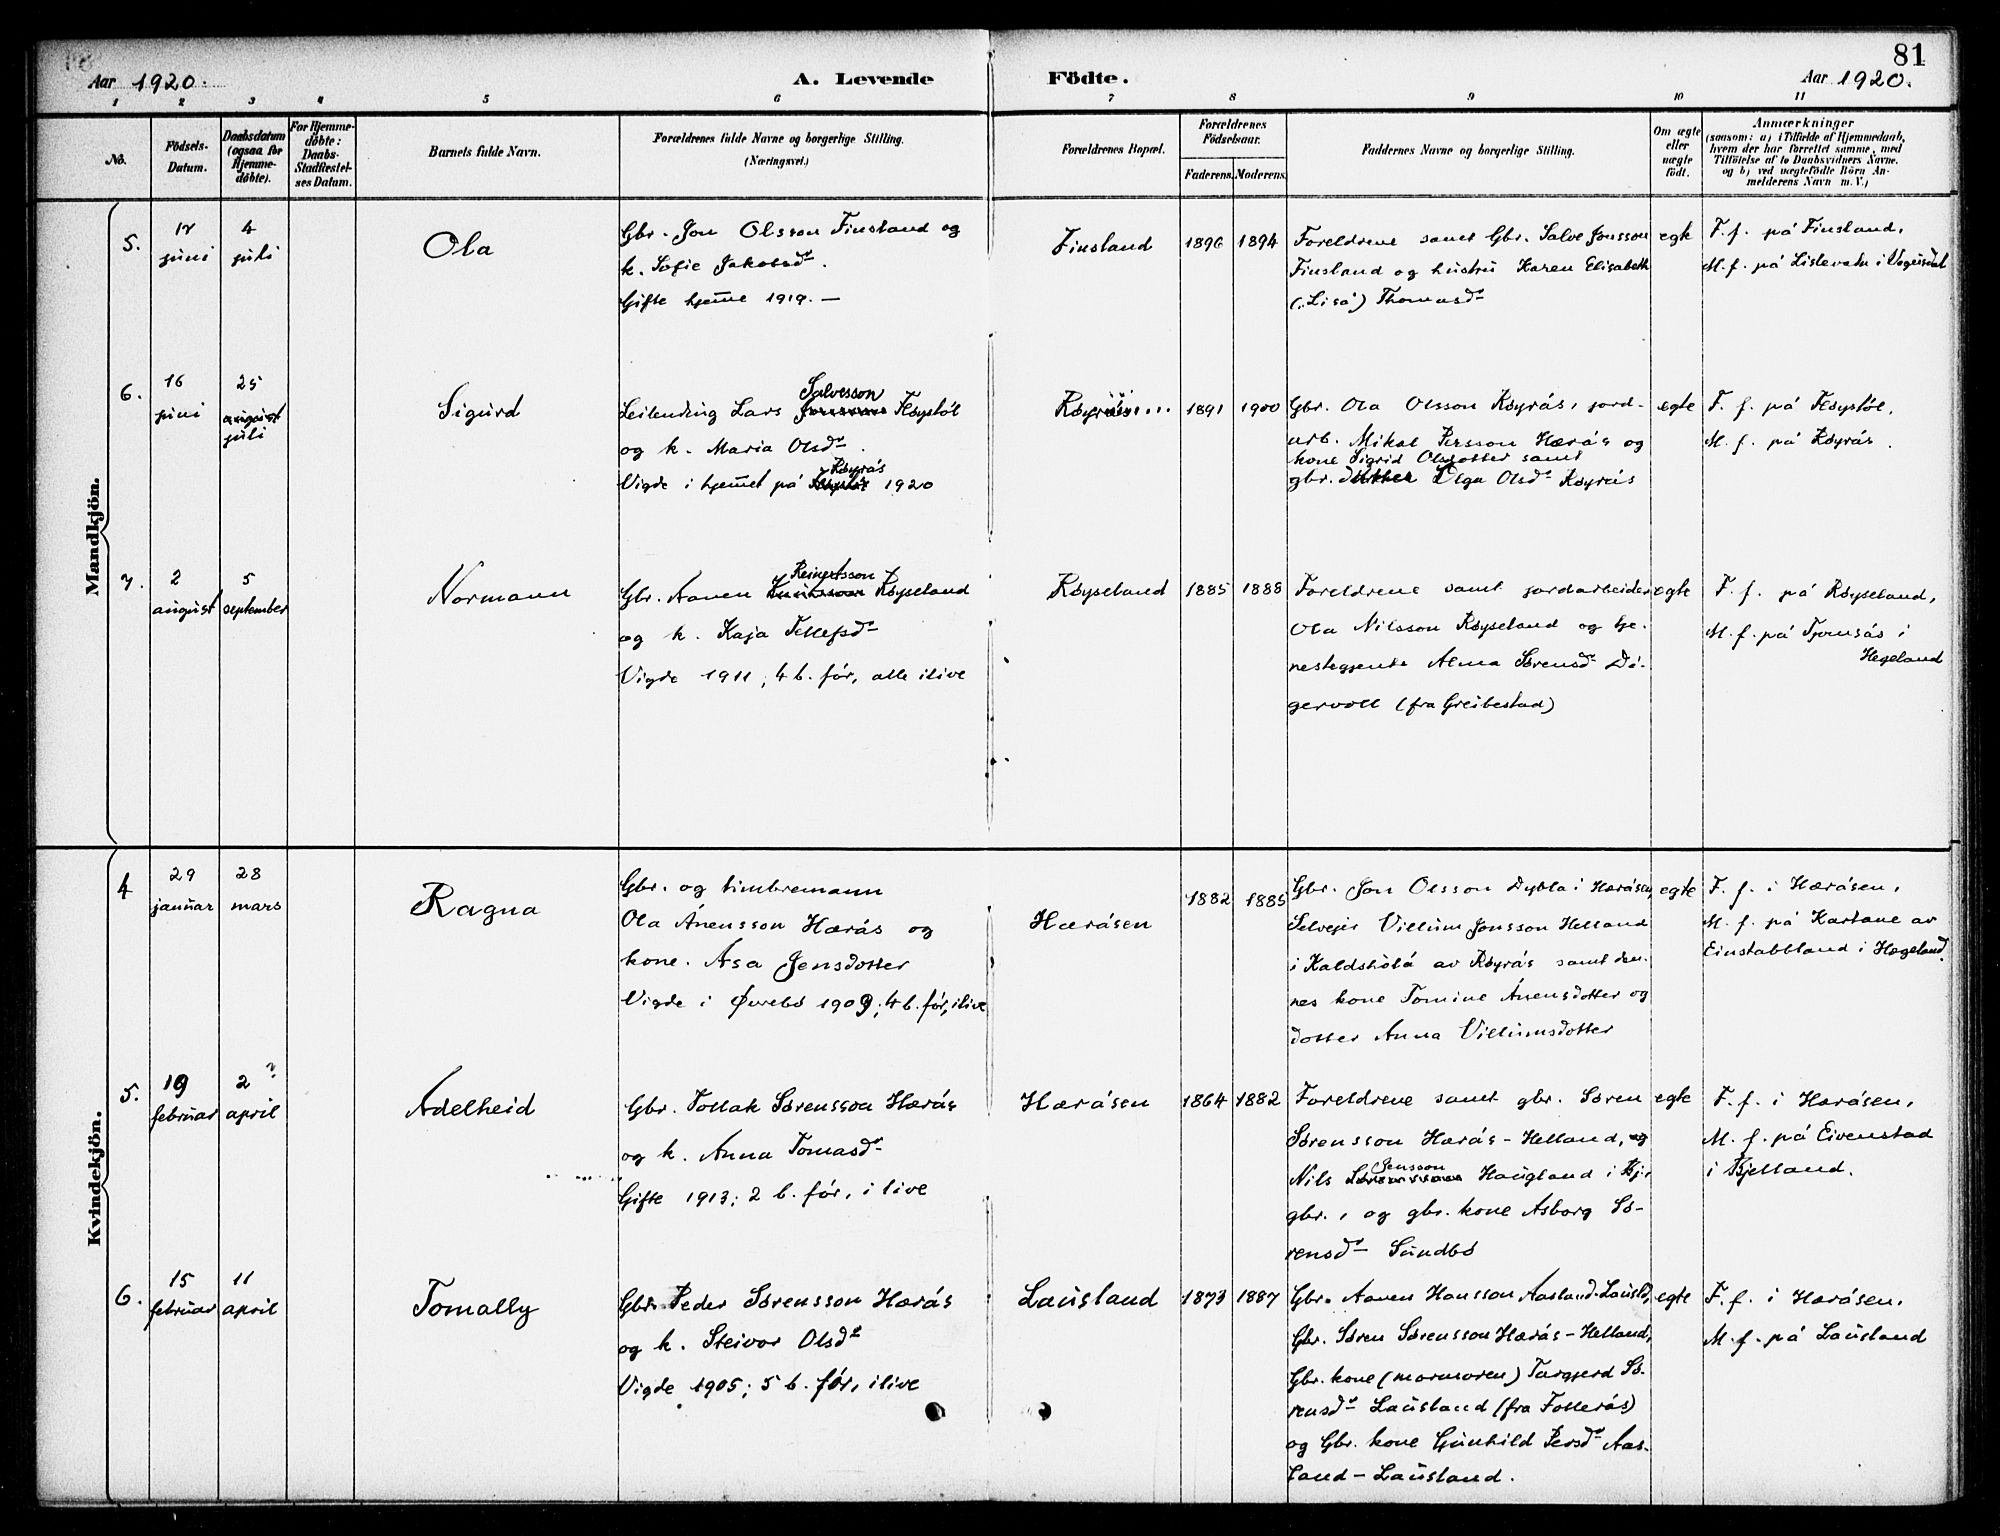 81
Aar 1920. A. Levende Födte. Aar 1920.
1 2 3 4 5 6 7 8 9 10 11
No.
Födsels-
Datum.
Daabsdatum
(ogsaa for
Hjemme-
döbte).
For Hjemme-
döbte:
Daabs-
Stadfæstel-
ses Datum.
Barnets fulde Navn.
Forældrenes fulde Navne og borgerlige Stilling.
(Næringsvei.)
Forældrenes Bopæl.
Forældrenes
Födselsaar.
Faderens. Moderens.
Faddernes Navne og borgerlige Stilling.
Om ægte
eller
uægte
födt.
Anmærkninger
(saasom: a) i Tilfælde af Hjemmedaab,
hvem der har forrettet samme, med
Tilföielse af to Daabsvidners Navne.
og b) ved uægtefödte Börn An-
melderens Navn m. V.)
Mandkjön.
5.
17
juni
4
juli
Ola
Gbr. Jon Olsson Finsland og
k. Sofie Jakobsd.
Gifte hjeme 1919. —
Finsland
1896 1894
Foreldrene samt Gbr. Salve Jonsson
Finsland og hustru Karen Elisabeth
(: Lisa) Thomasd
egte
F. f. på Finsland,
M. f. på Lislevatn i Vegusdal
6.
16
juni
25
august
juli
Sigurd
Salvesson
Leilending Lars Fløystøl
og k. Maria Olsd.
Røyrås
Vigde i hjemet på 1920
Røyrås
1891 1900
Gbr. Ola Olsson Røyrås, jord-
arb. Mikal Persson Hærås og
kone Sigrid Olsdotter samt
gbr. datter Olga Olsd Røyrås
egte
F. f. på Fløystøl,
M. f. på Røyrås.
7.
2
august
5
september
Normann
Reinertsson
Gbr. Aanen Røyseland
og k. Kaja Tellefsd
Vigde 1911, 4 b. før, alle ilive
Røyseland
1885 1888
Foreldrene samt jordarbeider
Ola Nilsson Røyseland og tje-
nestegjente Alma Sørensd Di-
gervoll (fra Greibestad)
egte
F. f. på Røyseland,
M. f. på Tjomsås i
Hegeland
Kvindekjön.
4
29
januar
28
mars
Ragna
Gbr. og timbremann
Ola Ånensson Hærås og
kone. Åsa Jensdotter
Vigde i Øvrebø 1909; 4 b. før, ilive
Hæråsen
1882 1885
Gbr. Jon Olsson Dybla i Hæråsen,
Selveier Villum Jonsson Helland
i Kaldshola av Røyrås samt den-
nes kone Tomine Ånensdotter og
dotter Anna Villumsdotter
egte
F. f. i Hæråsen,
M. f. på Kartane av
Einstabbland i Hægeland.
5.
19
februar
2 ?
april
Adelheid
Gbr. Tollak Sørensson Hærås
og k. Anna Tomasd
Gifte 1913; 2 b. før, i live
Hæråsen
1864 1882
Foreldrene samt gbr. Søren
Sørensson Hærås-Helland, og
Jensson
Nils Sørensson Haugland i Bj.
gbr., og gbr. kone Asborg Sø-
rensd Sundbø
egte
F. f. i Hæråsen,
M. f. på Eivenstad
i Bjelland.
6.
15
februar
11
april
Tomally
Gbr. Peder Sørensson Hærås
og k. Steivor Olsd
Vigde 1905; 5 b. før, ilive
Lausland
1873 1887
Gbr. Aanen Hansson Aasland-Lausld,
Gbr. Søren Sørensson Hærås-Helland,
Gbr. kone (mormoren) Targjerd Sø-
rensd Lausland (fra Follerås)
og Gbr. kone Gunhild Persd Aas-
land-Lausland.
egte
F. f. i Hæråsen.
M. f. på Lausland